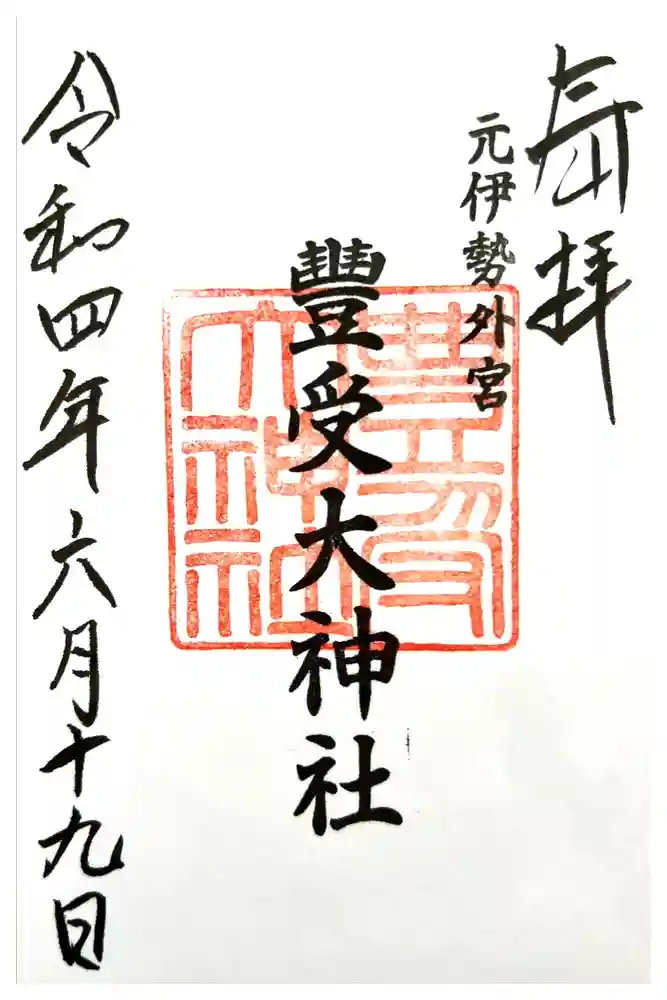 奉拝
元伊勢外宮
豐受大神社
令和四年六月十九日